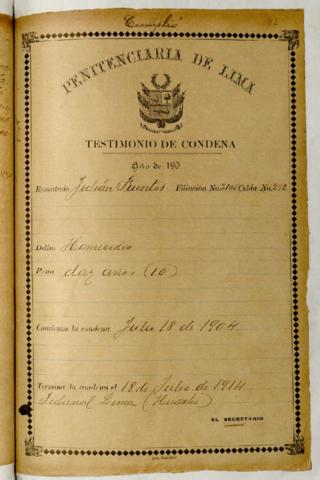 Cumplió
PENITENCIARIA DE LIMA
TESTIMONIO DE CONDENA
Año de 190
Rematado Julián Fuentes Filiación No. 2104 Celda No. 292
Delito Homicidio
Pena diez años (10)
Comienza la condena Julio 18 de 1904
Termina la condena el 18 de Julio de 1914
Tribunal Lima (Huacho)
EL SECRETARIO